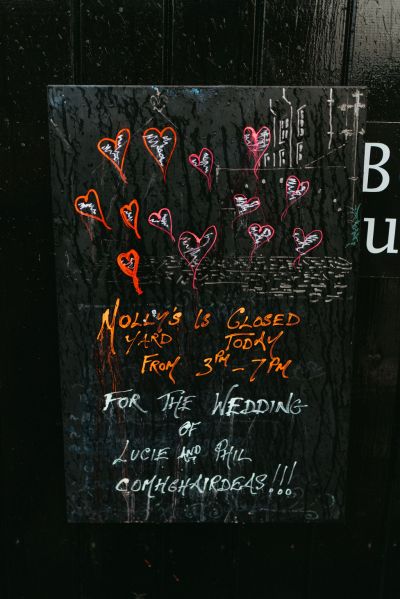 MOLLY'S IS CLOSED
YARD TODAY
FROM 3PM - 7PM
FOR THE WEDDING
OF
LUCIE AND PHIL
COMHGHAIRDEAS!!!
B
u